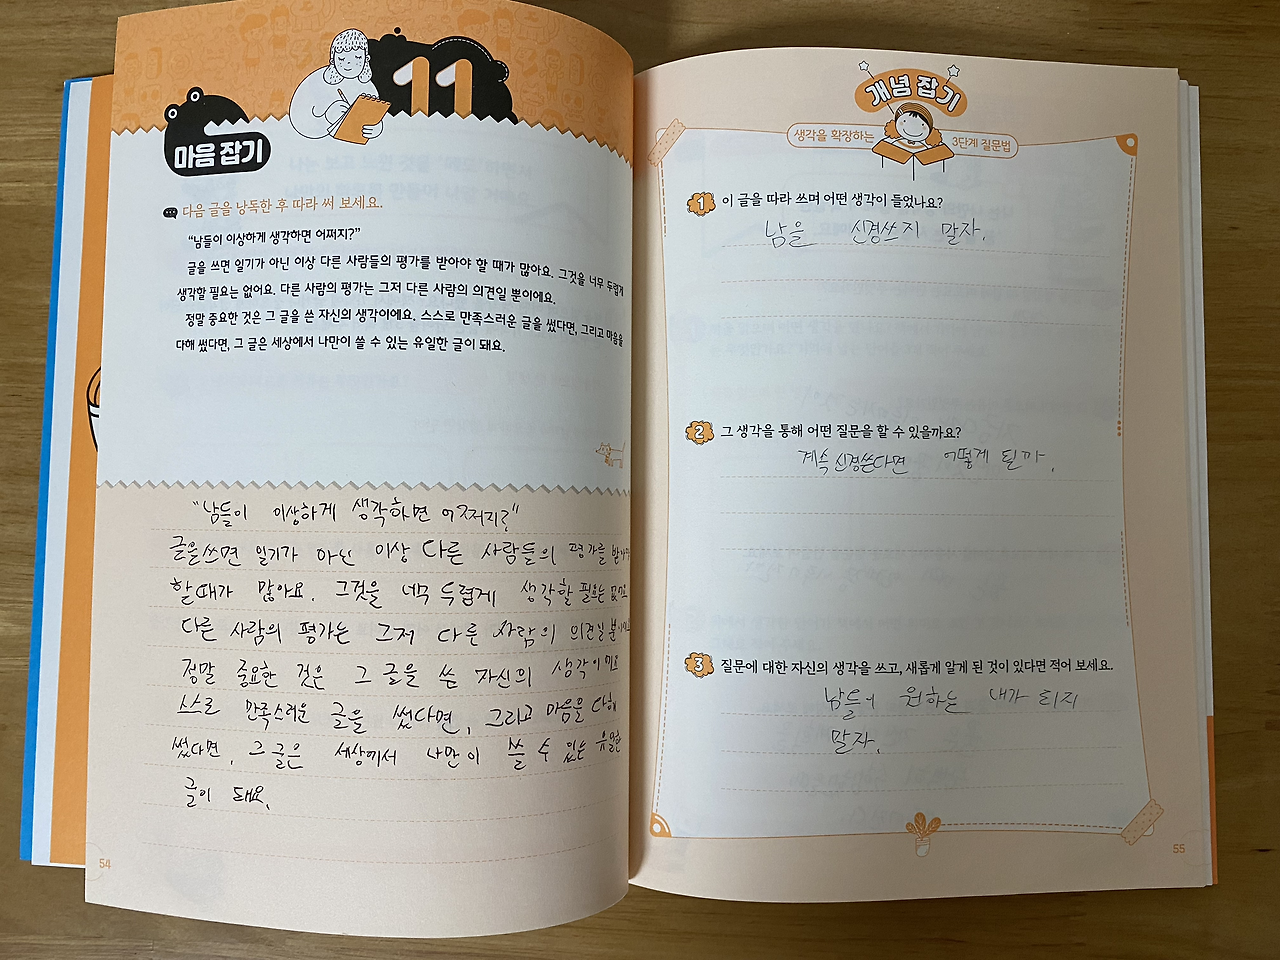 11
마음 잡기
다음 글을 낭독한 후 따라 써 보세요.
“남들이 이상하게 생각하면 어쩌지?”
글을 쓰면 일기가 아닌 이상 다른 사람들의 평가를 받아야 할 때가 많아요. 그것을 너무 두렵게
생각할 필요는 없어요. 다른 사람의 평가는 그저 다른 사람의 의견일 뿐이에요.
정말 중요한 것은 그 글을 쓴 자신의 생각이에요. 스스로 만족스러운 글을 썼다면, 그리고 마음을
다해 썼다면, 그 글은 세상에서 나만이 쓸 수 있는 유일한 글이 돼요.
“남들이 이상하게 생각하면 어쩌지?”
글을 쓰면 일기가 아닌 이상 다른 사람들의 평가를
할 때가 많아요. 그것을 너무 두렵게 생각할 필요는 없어요
다른 사람의 평가는 그저 다른 사람의 의견일 뿐이에요
정말 중요한 것은 그 글을 쓴 자신의 생각이에요
스스로 만족스러운 글을 썼다면, 그리고 마음을 다해
썼다면, 그 글은 세상에서 나만이 쓸 수 있는 유일한
글이 돼요.
54
개념 잡기
생각을 확장하는 3단계 질문법
1 이 글을 따라 쓰며 어떤 생각이 들었나요?
남을 신경쓰지 말자.
2 그 생각을 통해 어떤 질문을 할 수 있을까요?
계속 신경쓴다면 어떻게 될까.
3 질문에 대한 자신의 생각을 쓰고, 새롭게 알게 된 것이 있다면 적어 보세요.
남들이 원하는 내가 되지
말자.
55